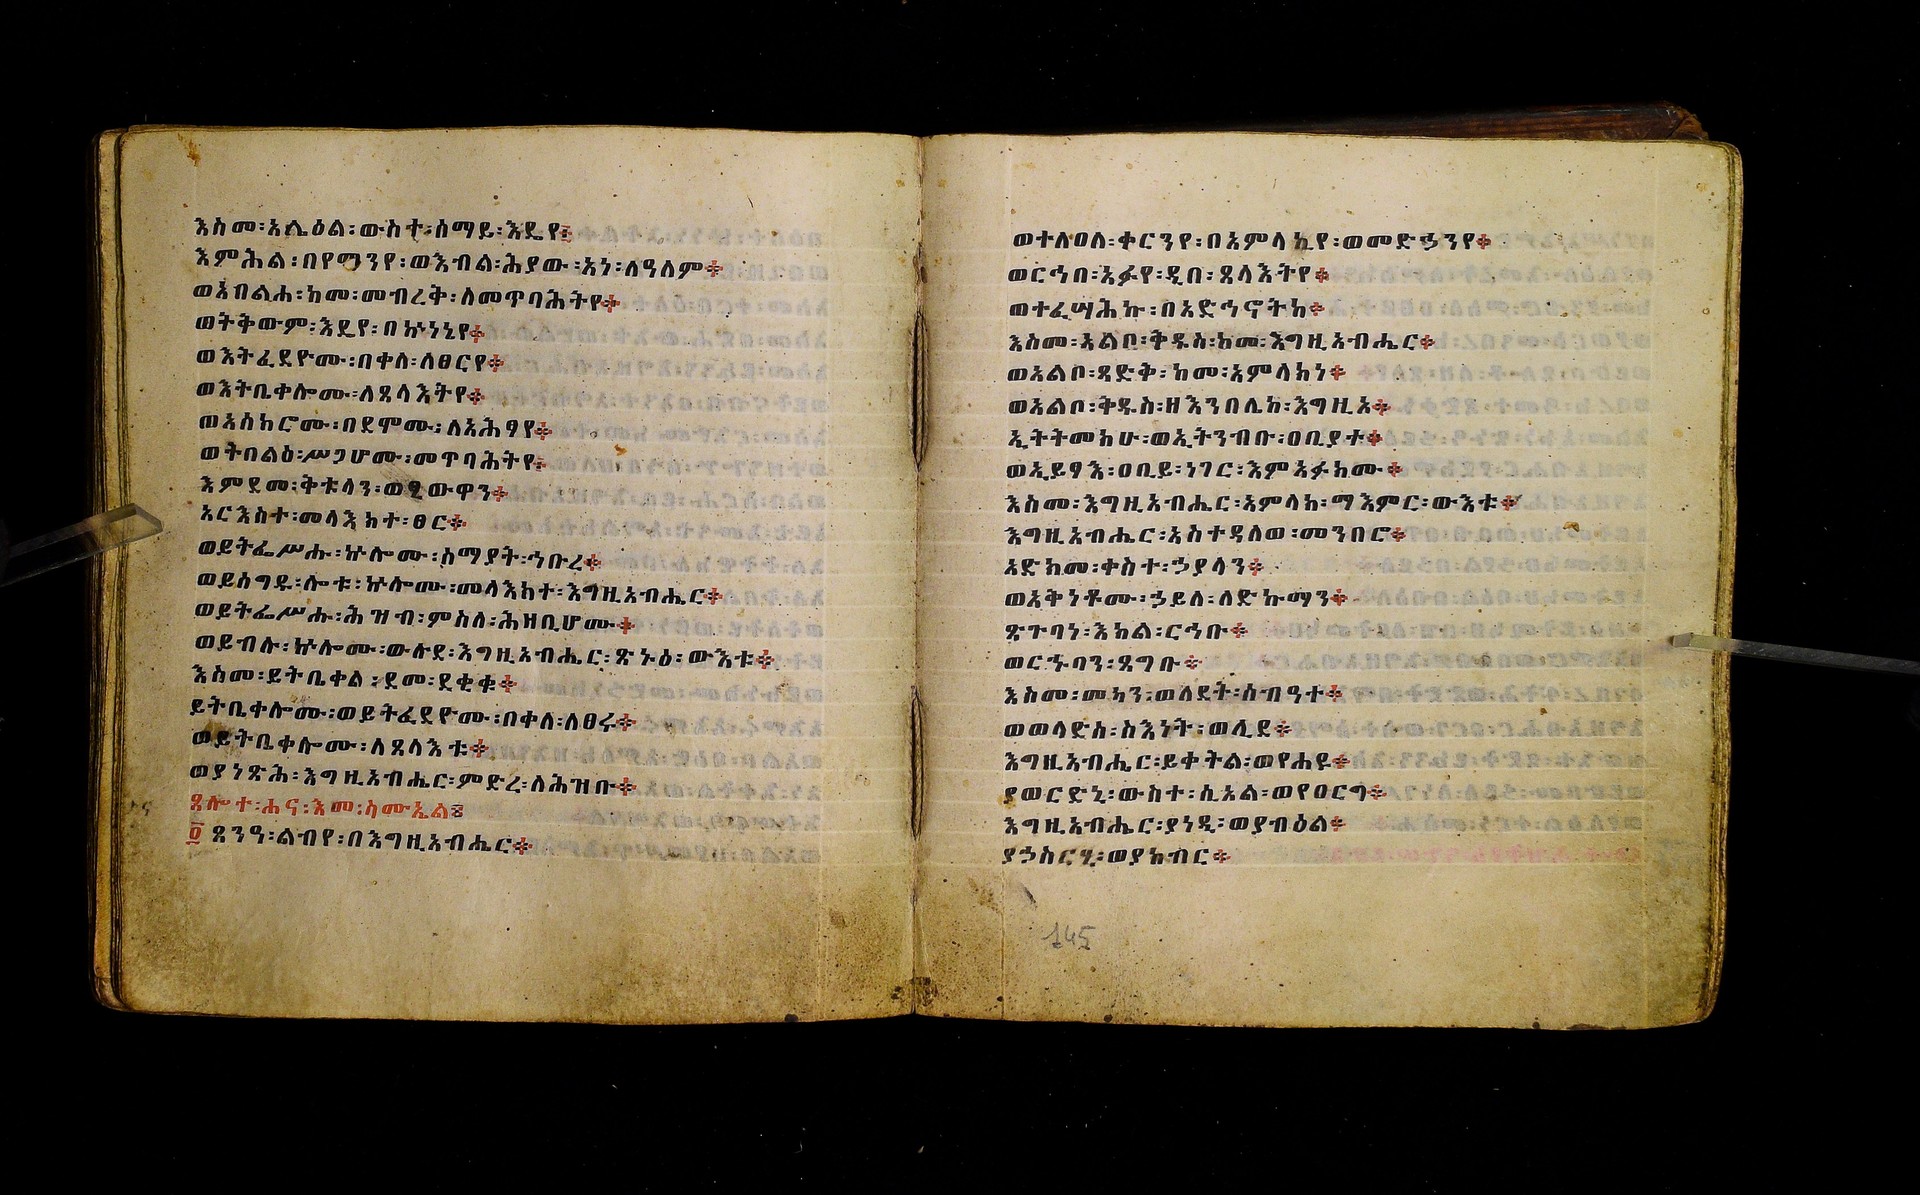 እስመ፡አሌዕል፡ውስተ፡ሰማይ፡እዴየ፨
እምሕል፡በየማንየ፡ወእብል፡ሕያው፡አነ፡ለዓለም፨
ወእብልሖ፡ከመ፡መብረቅ፡ለመጥባሕትየ፨
ወትቅውም፡እዴየ፡በኵነኔየ፨
ወእትፈደዮሙ፡በቀለ፡ለፀርየ፨
ወእትቤቀሎሙ፡ለጸላእትየ፨
ወአሰክሮሙ፡በደሞሙ፡ለአሕፃየ፨
ወትበልዕ፡ሥጋሆሙ፡መጥባሕትየ፨
እምደመ፡ቅቱላን፡ወፂውዋን፨
አርእስተ፡መላእክተ፡ፀር፨
ወይትፌሥሑ፡ኵሎሙ፡ሰማያት፡ኅቡረ፨
ወይሰግዱ፡ሎቱ፡ኵሎሙ፡መላእክተ፡እግዚአብሔር፨
ወይትፌሥሑ፡ሕዝብ፡ምስለ፡ሕዘቢሆሙ፨
ወይብሉ፡ኵሎሙ፡ውሉደ፡እግዚአብሔር፡ጽኑዕ፡ውእቱ፨
እስመ፡ይትቤቀል፡ደመ፡ደቂቁ፨
ይትቤቀሎሙ፡ወይትፈደዮሙ፡በቀለ፡ለፀሩ፨
ወይትቤቀሎሙ፡ለጸላእቱ፨
ወያነጽሕ፡እግዚአብሔር፡ምድረ፡ለሕዝቡ፨
ጸሎተ፡ሐና፡እመ፡ሳሙኤል፨
፬ ጸንዓ፡ልብየ፡በእግዚአብሔር፨
ወተለዐለ፡ቀርንየ፡በአምላኪየ፡ወመድኃንየ፨
ወርኅበ፡አፉየ፡ዲበ፡ጸላእትየ፨
ወተፈሣሕኩ፡በአድኅኖትከ፨
እስመ፡አልቦ፡ቅዱስ፡ከመ፡እግዚአብሔር፨
ወአልቦ፡ጻድቅ፡ከመ፡አምላክነ፨
ወአልቦ፡ቅዱስ፡ዘእንበሌከ፡እግዚአ፨
ኢትትመክሁ፡ወኢትንብቡ፡ዐቢያተ፨
ወኢይፃእ፡ዐቢይ፡ነገር፡እምአፉክሙ፨
እስመ፡እግዚአብሔር፡አምላክ፡ማእምር፡ውእቱ፨
እግዚአብሔር፡አስተዳለወ፡መንበሮ፨
አድከመ፡ቀስተ፡ኃያላን፨
ወአቅነቶሙ፡ኃይለ፡ለድኩማን፨
ጽጉባነ፡እክል፡ርኅቡ፨
ወርኁባን፡ጸግቡ፨
እስመ፡መካን፡ወለደት፡ሰብዓተ፨
ወወላድሰ፡ስእነት፡ወሊደ፨
እግዚአብሔር፡ይቀትል፡ወየሐዩ፨
ያወርድኒ፡ውስተ፡ሲኦል፡ወየዐርግ፨
እግዚአብሔር፡ያነዲ፡ወያብዕል፨
ያኃስርሂ፡ወያከብር፨
145